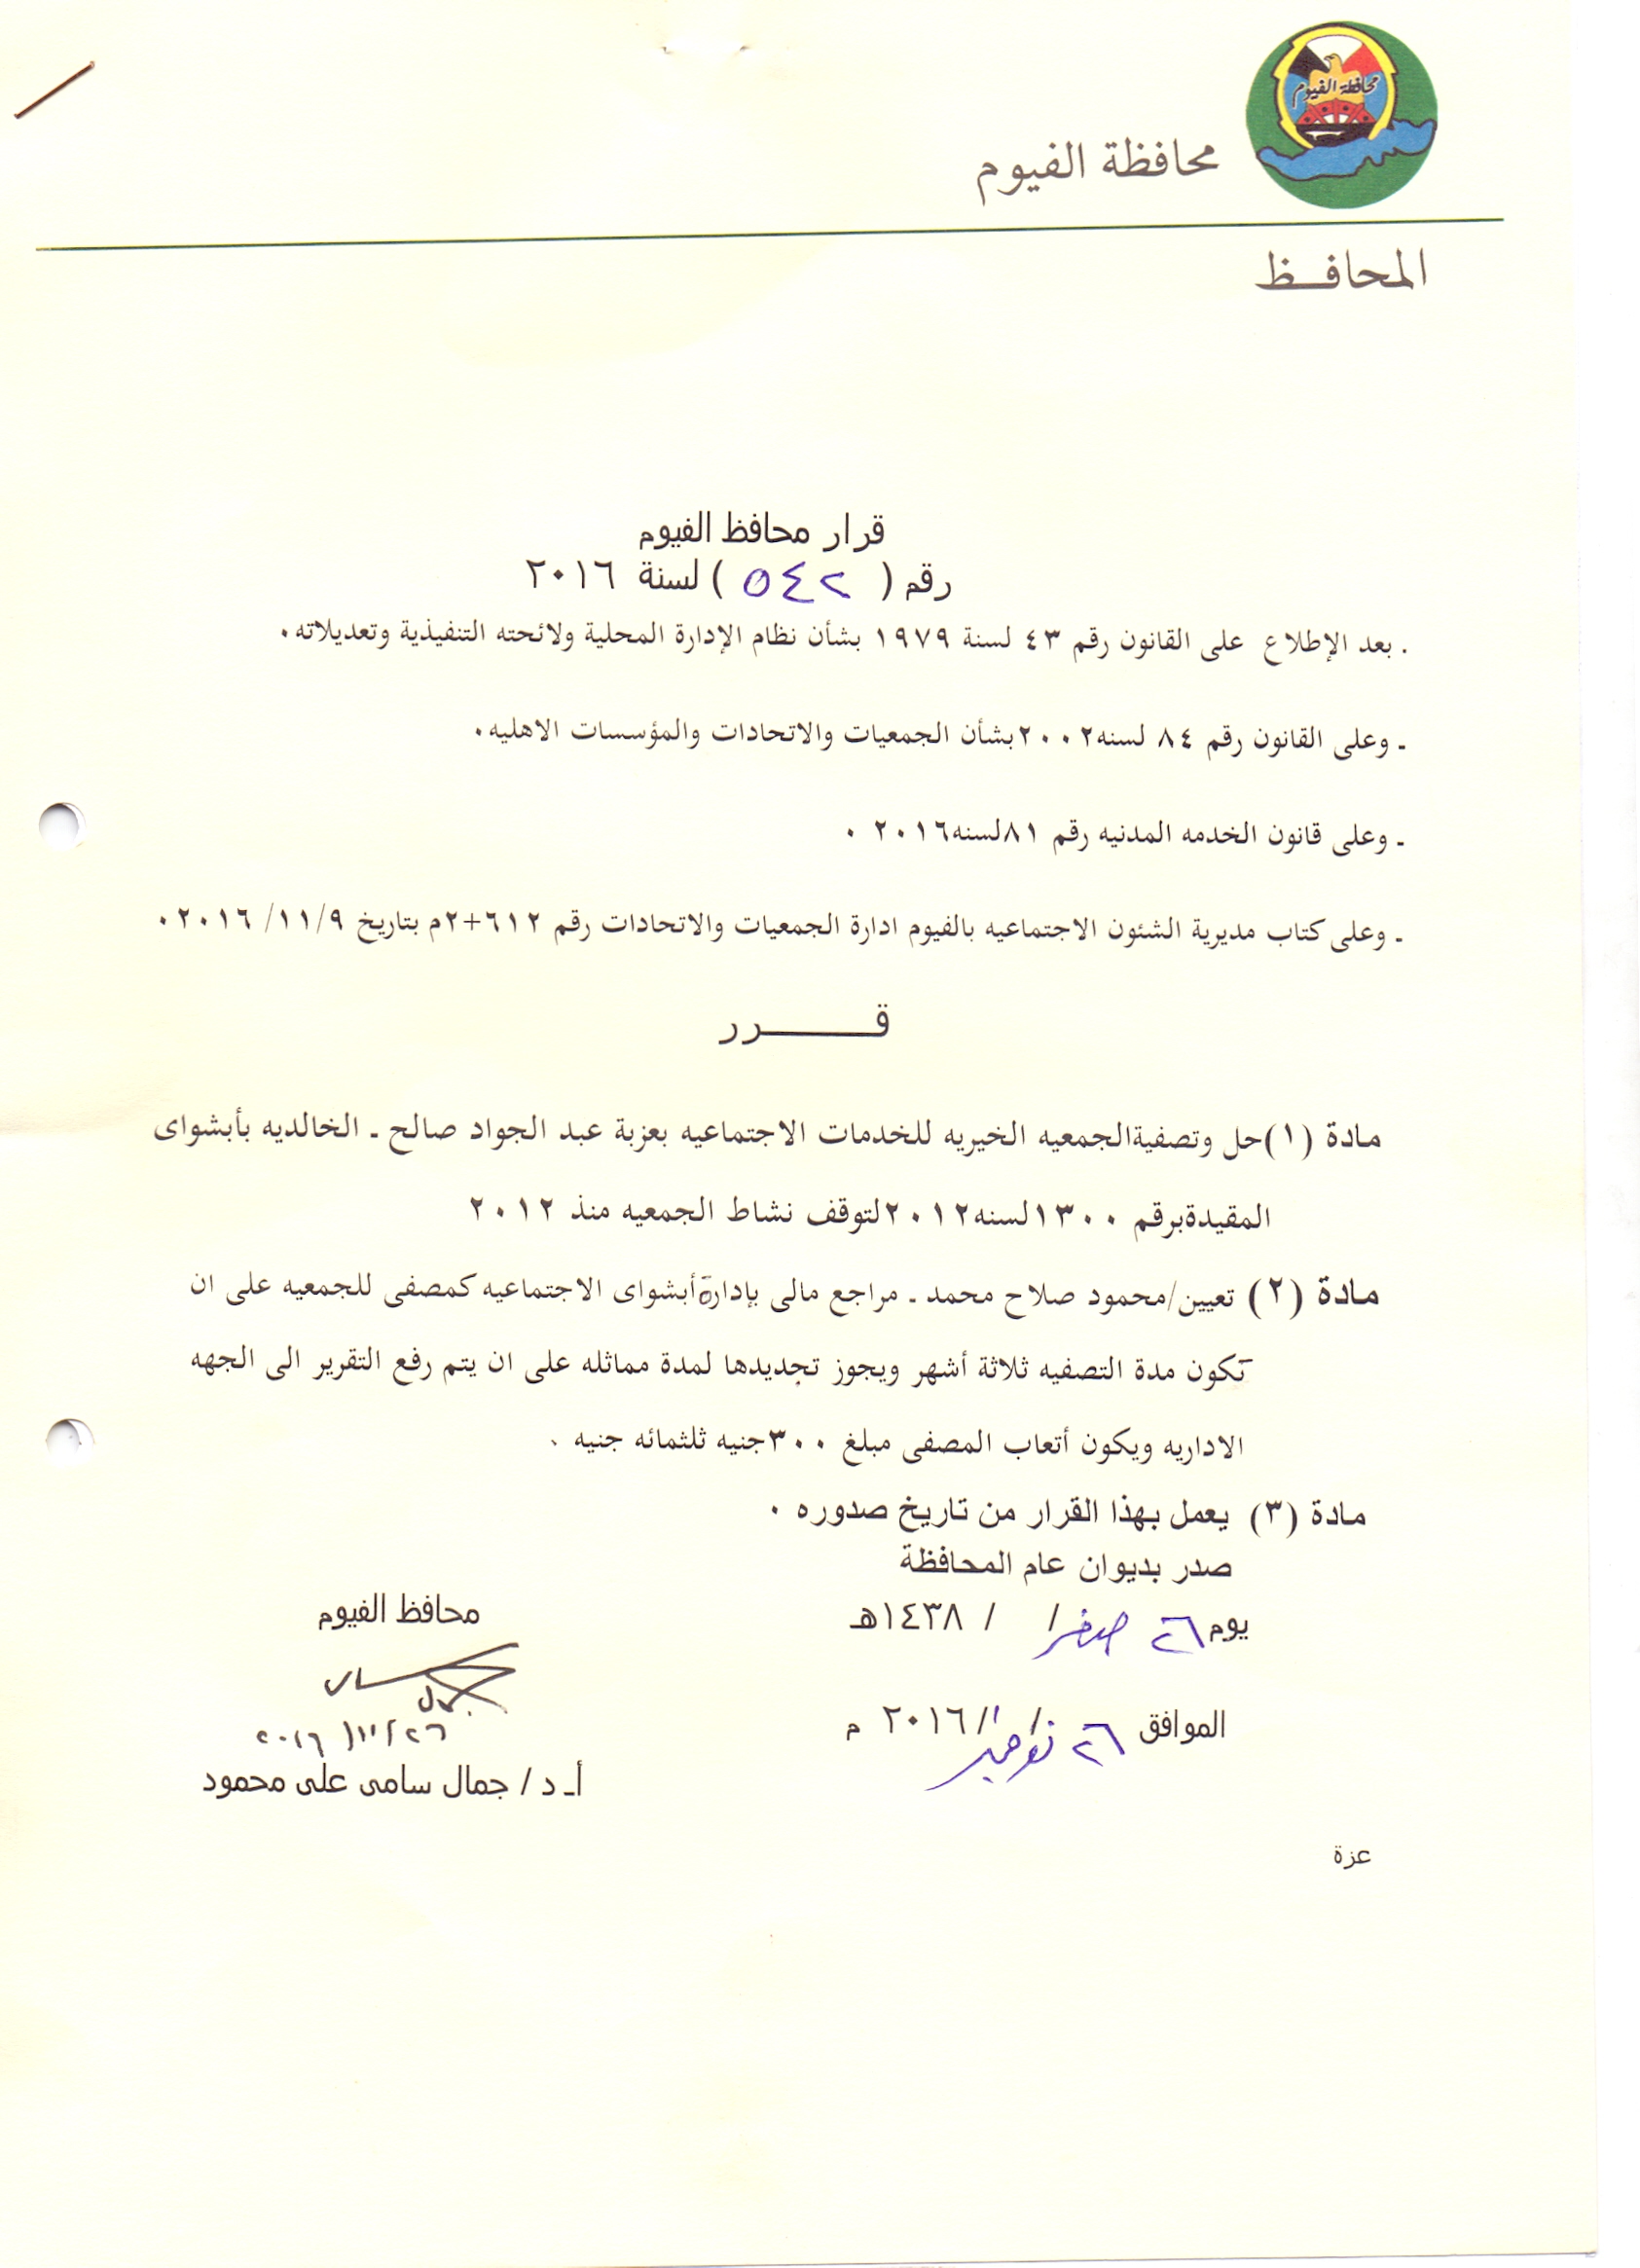 محافظة الفيوم
محافظة الفيوم
المحافـظ
قرار محافظ الفيوم
رقم ( ٥٤٢ ) لسنة ٢٠١٦
. بعد الإطلاع على القانون رقم ٤٣ لسنة ١٩٧٩ بشأن نظام الإدارة المحلية ولائحته التنفيذية وتعديلاته.
ـ وعلى القانون رقم ٨٤ لسنه٢٠٠٢بشأن الجمعيات والاتحادات والمؤسسات الاهليه.
ـ وعلى قانون الخدمه المدنيه رقم ٨١لسنه٢٠١٦ .
ـ وعلى كتاب مديرية الشئون الاجتماعيه بالفيوم ادارة الجمعيات والاتحادات رقم ٦١٢+٢م بتاريخ ٩/١١/ ٢٠١٦.
قـــــرر
مادة (١)حل وتصفيةالجمعيه الخيريه للخدمات الاجتماعيه بعزبة عبد الجواد صالح ـ الخالديه بأبشواى
المقيدةبرقم ١٣٠٠لسنه٢٠١٢لتوقف نشاط الجمعيه منذ ٢٠١٢
مادة (٢) تعيين/محمود صلاح محمد ـ مراجع مالى بإدارةأبشواى الاجتماعيه كمصفى للجمعيه على ان
تكون مدة التصفيه ثلاثة أشهر ويجوز تجديدها لمدة مماثله على ان يتم رفع التقرير الى الجهه
الاداريه ويكون أتعاب المصفى مبلغ ٣٠٠جنيه ثلثمائه جنيه .
مادة (٣) يعمل بهذا القرار من تاريخ صدوره .
صدر بديوان عام المحافظة
يوم ٢٦ صفر/ / ١٤٣٨هـ
الموافق ٢٦ نوفمبر / /٢٠١٦ م
محافظ الفيوم
٢٠١٦/١١/٢٦
أـ د/ جمال سامى على محمود
عزة